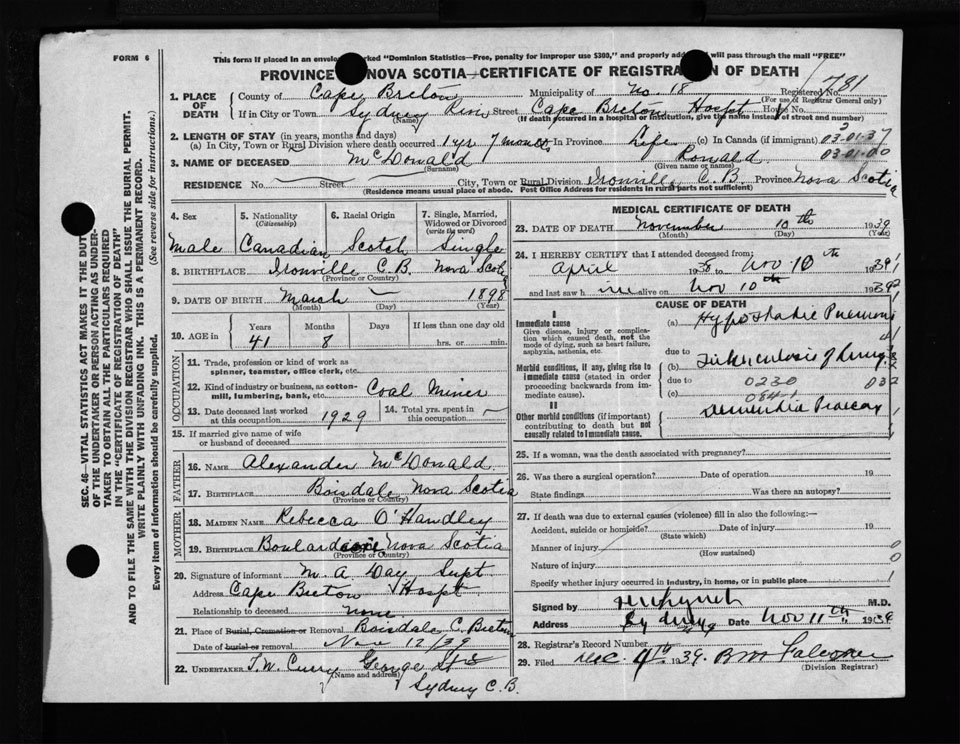 FORM 6
This form if placed in an envelo rked "Dominion Statistics—Free, penalty for improper use $300," and properly add ed will pass through the mail "FREE"
PROVINCE NOVA SCOTIA—CERTIFICATE OF REGISTRA N OF DEATH
1. PLACE OF DEATH
County of Cape Breton Municipality of No. 18 Registered No. 781
(For use of Registrar General only)
If in City or Town Sydney River Street Cape Breton Hospt House No.
(Name) (If death occurred in a hospital or institution, give the name instead of street and number)
2. LENGTH OF STAY (in years, months and days)
(a) In City, Town or Rural Division where death occurred 1 yr 7 months In Province Life (c) In Canada (if immigrant) 03-01-37
3. NAME OF DECEASED McDonald Ronald 03-01-00
(Surname) (Given name or names)
RESIDENCE No. Street City, Town or Rural Division Ironville C.B. Province Nova Scotia
(Residence means usual place of abode. Post Office Address for residents in rural parts not sufficient)
SEC. 46—VITAL STATISTICS ACT MAKES IT THE DUT
OF THE UNDERTAKER OR PERSON ACTING AS UNDER-
TAKER TO OBTAIN ALL THE PARTICULARS REQUIRED
IN THE "CERTIFICATE OF REGISTRATION OF DEATH"
AND TO FILE THE SAME WITH THE DIVISION REGISTRAR WHO SHALL ISSUE THE BURIAL PERMIT.
WRITE PLAINLY WITH UNFADING INK. THIS IS A PERMANENT RECORD.
Every item of information should be carefully supplied. (See reverse side for instructions.)
4. Sex 5. Nationality 6. Racial Origin 7. Single, Married, Widowed or Divorced
(Citizenship) (write the word)
Male Canadian Scotch Single
8. BIRTHPLACE Ironville C.B. Nova Scotia
(Province or Country)
9. DATE OF BIRTH March — 1898
(Month) (Day) (Year)
10. AGE in Years Months Days If less than one day old
41 8 hrs. or min.
OCCUPATION
11. Trade, profession or kind of work as spinner, teamster, office clerk, etc.
12. Kind of industry or business, as cotton-mill, lumbering, bank, etc. Coal Miner
13. Date deceased last worked at this occupation 1929 14. Total yrs. spent in this occupation
15. If married give name of wife or husband of deceased
FATHER
16. NAME Alexander McDonald
17. BIRTHPLACE Boisdale Nova Scotia
(Province or Country)
MOTHER
18. MAIDEN NAME Rebecca O'Handley
19. BIRTHPLACE Boulardarie Nova Scotia
(Province or Country)
20. Signature of informant M. A. Day Supt
Address Cape Breton Hospt
Relationship to deceased none
21. Place of Burial, Cremation or Removal Boisdale C. Breton
Date of burial or removal Nov 12/39
22. UNDERTAKER T.W. Curry George St
(Name and address)
Sydney C.B.
MEDICAL CERTIFICATE OF DEATH
23. DATE OF DEATH November 10th 1939
(Month) (Day) (Year)
24. I HEREBY CERTIFY that I attended deceased from
April 1938 to Nov 10th 1939
and last saw h im alive on Nov 10th 1939
CAUSE OF DEATH
I
Immediate cause
Give disease, injury or complication which caused death, not the mode of dying, such as heart failure, asphyxia, asthenia, etc.
(a) Hypostatic Pneumonia
due to
Morbid conditions, if any, giving rise to immediate cause (stated in order proceeding backwards from immediate cause).
(b) Tuberculosis of Lung
due to 0230 032
(c) 0841
II
Other morbid conditions (if important) contributing to death but not causally related to immediate cause.
Dementia Praecox
25. If a woman, was the death associated with pregnancy?
26. Was there a surgical operation? Date of operation 19
State findings Was there an autopsy?
27. If death was due to external causes (violence) fill in also the following:—
Accident, suicide or homicide? Date of injury 19
(State which)
Manner of injury 0
(How sustained)
Nature of injury 0
Specify whether injury occurred in industry, in home, or in public place 1
Signed by M.D.
Address Sydney Date Nov 11th 1939
28. Registrar's Record Number
29. Filed Dec. 4th 1939. B M Falconer
(Division Registrar)